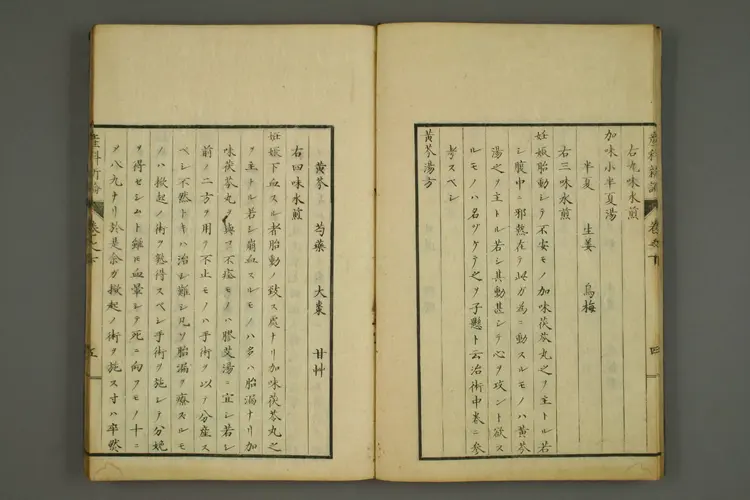 産科新論 巻之下 四
右九味水煎
加味小半夏湯
半夏 生姜 烏梅
右三味水煎
妊娠胎動シテ不安モノ加味茯苓丸之ヲ主トル若
シ臓中ニ邪熱在テ此ガ為ニ動スルモノハ黄芩
湯之ヲ主トル若シ其動甚シテ心ヲ攻ント欲ス
ルモノハ名ツケテ之ヲ子懸ト云治術中巻ニ参
考スベシ
黄芩湯方
黄芩 芍薬 大棗 甘艸
右四味水煎
妊娠下血スル者胎動ノ致ス處ナリ加味茯苓丸之
ヲ主トル若シ崩血スルモノハ多ハ胎漏ナリ加
味茯苓丸ヲ與テ不痊モノハ膠艾湯ニ宜シ若シ
前ノ二方ヲ用テ不止モノハ手術ヲ以テ分産ス
ベシ不然トキハ治シ難シ凡ソ胎漏ヲ療スルモ
ノハ掀起ノ術ヲ熟得スベシ手術ヲ施シテ分娩
ヲ得セシムト雖圧血暈シテ死ニ向フモノ十ニ
ノ八九ナリ於是余ガ掀起ノ術ヲ施ス寸ハ卒然
産科新論 巻之下 五